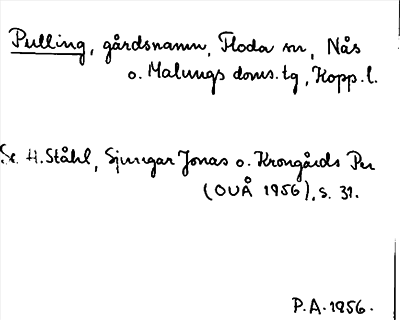 Pulling, gårdsnamn, Floda sn, Nås
o. Malungs doms. tg, Kopp. l.
Se H. Ståhl, Sjungar Jonas o. Krongårds Per
(OUÅ 1956), s. 31.
P.A. 1956.